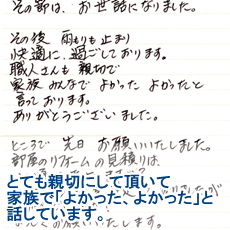 その節は、お世話になりました。
その後 雨もりも止まり
快適に過ごしております。
職人さんも親切で
家族みんなで よかった よかったと
言っております。
ありがとうございました。
ところで 先日 お願いいたしました。
部屋のリフォームの見積りは
とても親切にして頂いて
家族で「よかった、よかった」と
話しています。
お願いいたします。